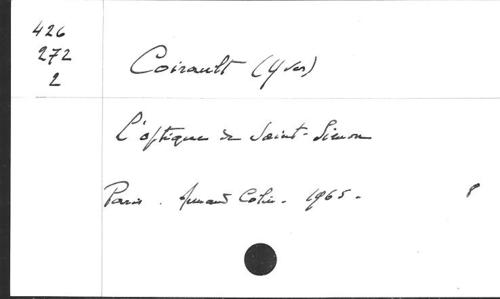 426
272
2
Coirault (Yves)
L'optique de Saint-Simon
Paris. Armand Colin. 1965.
8